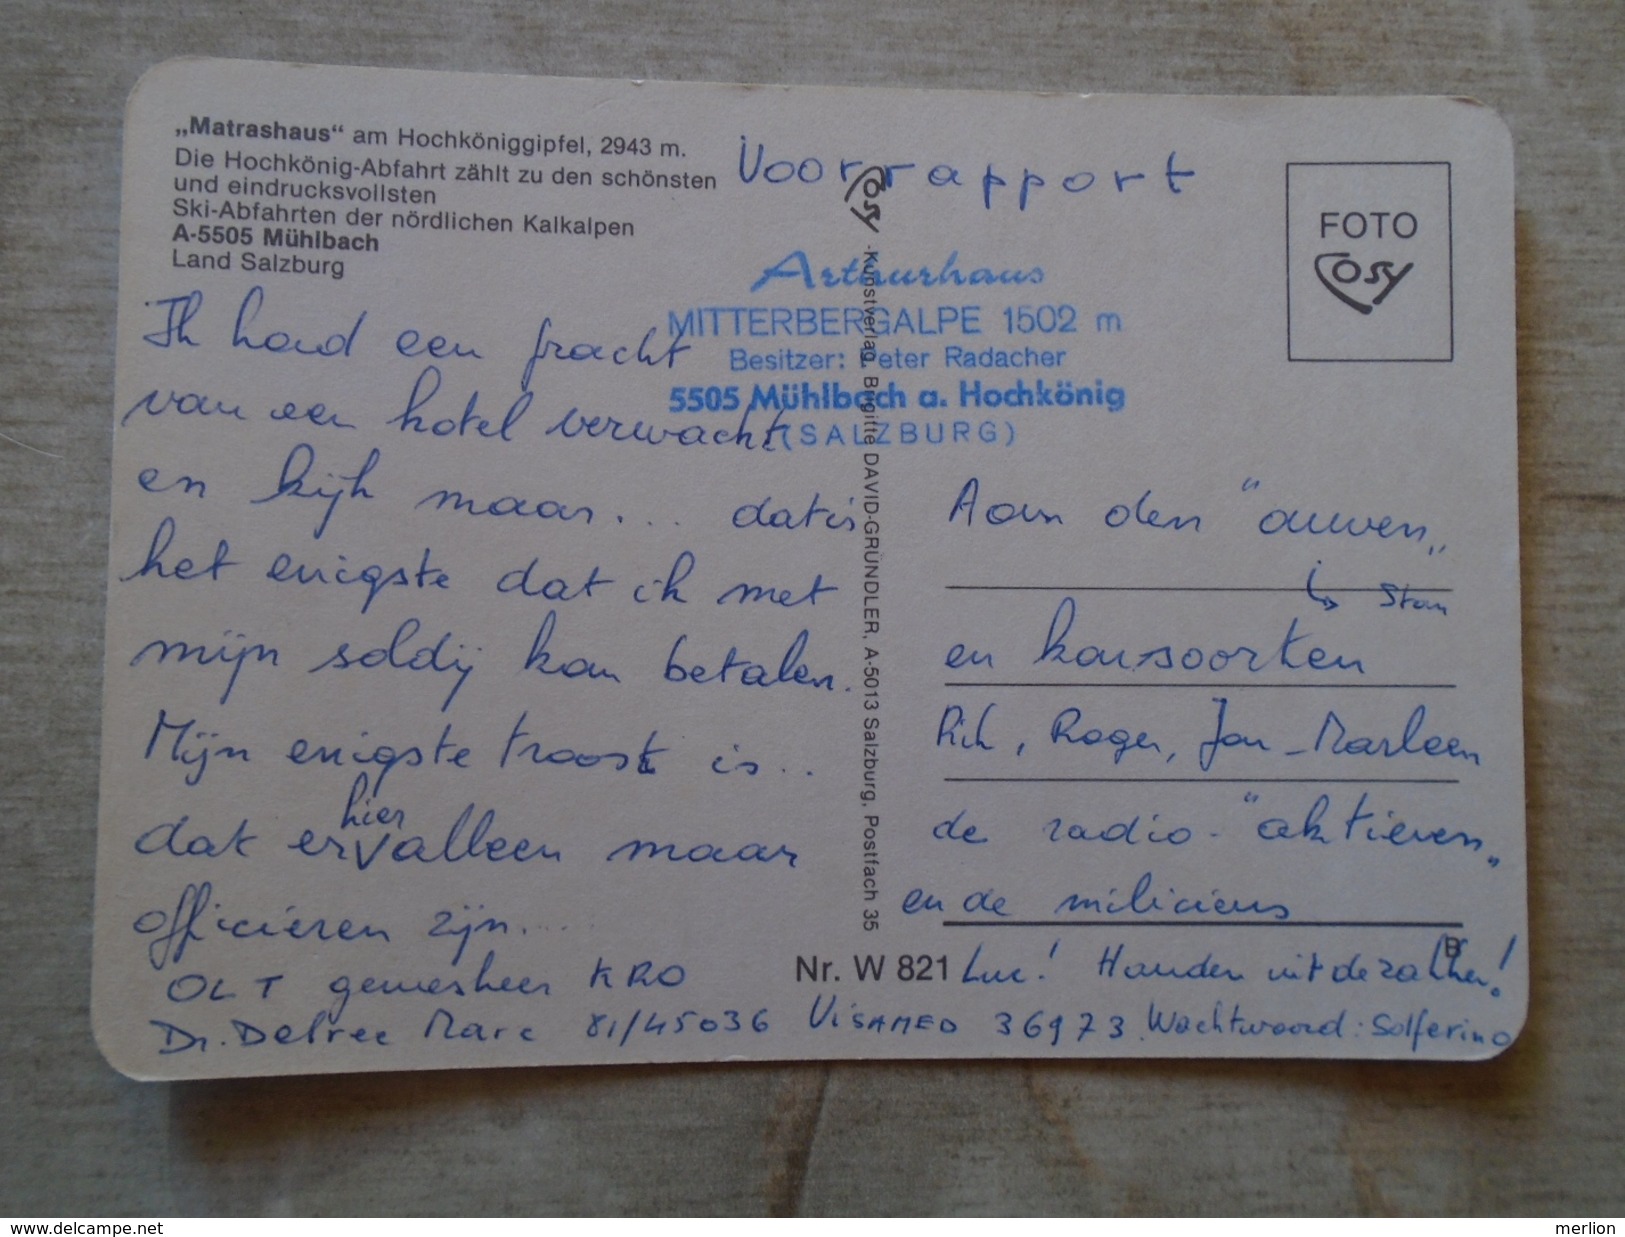 „Matrashaus“ am Hochköniggipfel, 2943 m.
Die Hochkönig-Abfahrt zählt zu den schönsten
und eindrucksvollsten
Ski-Abfahrten der nördlichen Kalkalpen
A-5505 Mühlbach
Land Salzburg
Voorrapport
Arthurhaus
MITTERBERGALPE 1502 m
Besitzer: Peter Radacher
5505 Mühlbach a. Hochkönig
(SALZBURG)
FOTO
Cosy
Cosy -Kunstverlag, Brigitte DAVID-GRÜNDLER, A-5013 Salzburg, Postfach 35
Ik had een pracht
van een hotel verwacht
en kijk maar... dat is
het enigste dat ik met
mijn soldij kan betalen.
Mijn enigste troost is...
dat er hier alleen maar
officieren zijn....
OLT geneesheer KRO
Dr. Delree Marc 81/45036 VISAMED 36973. Wachtwoord: Solferino
Aan den "ouwen„
↳ Stan
en konsoorten
Rik, Roger, Jan-Marleen
de radio-"aktieven„
en de miliciens
B
Nr. W 821
Luc! Handen uit de zakken!
delcampe.net
merlion